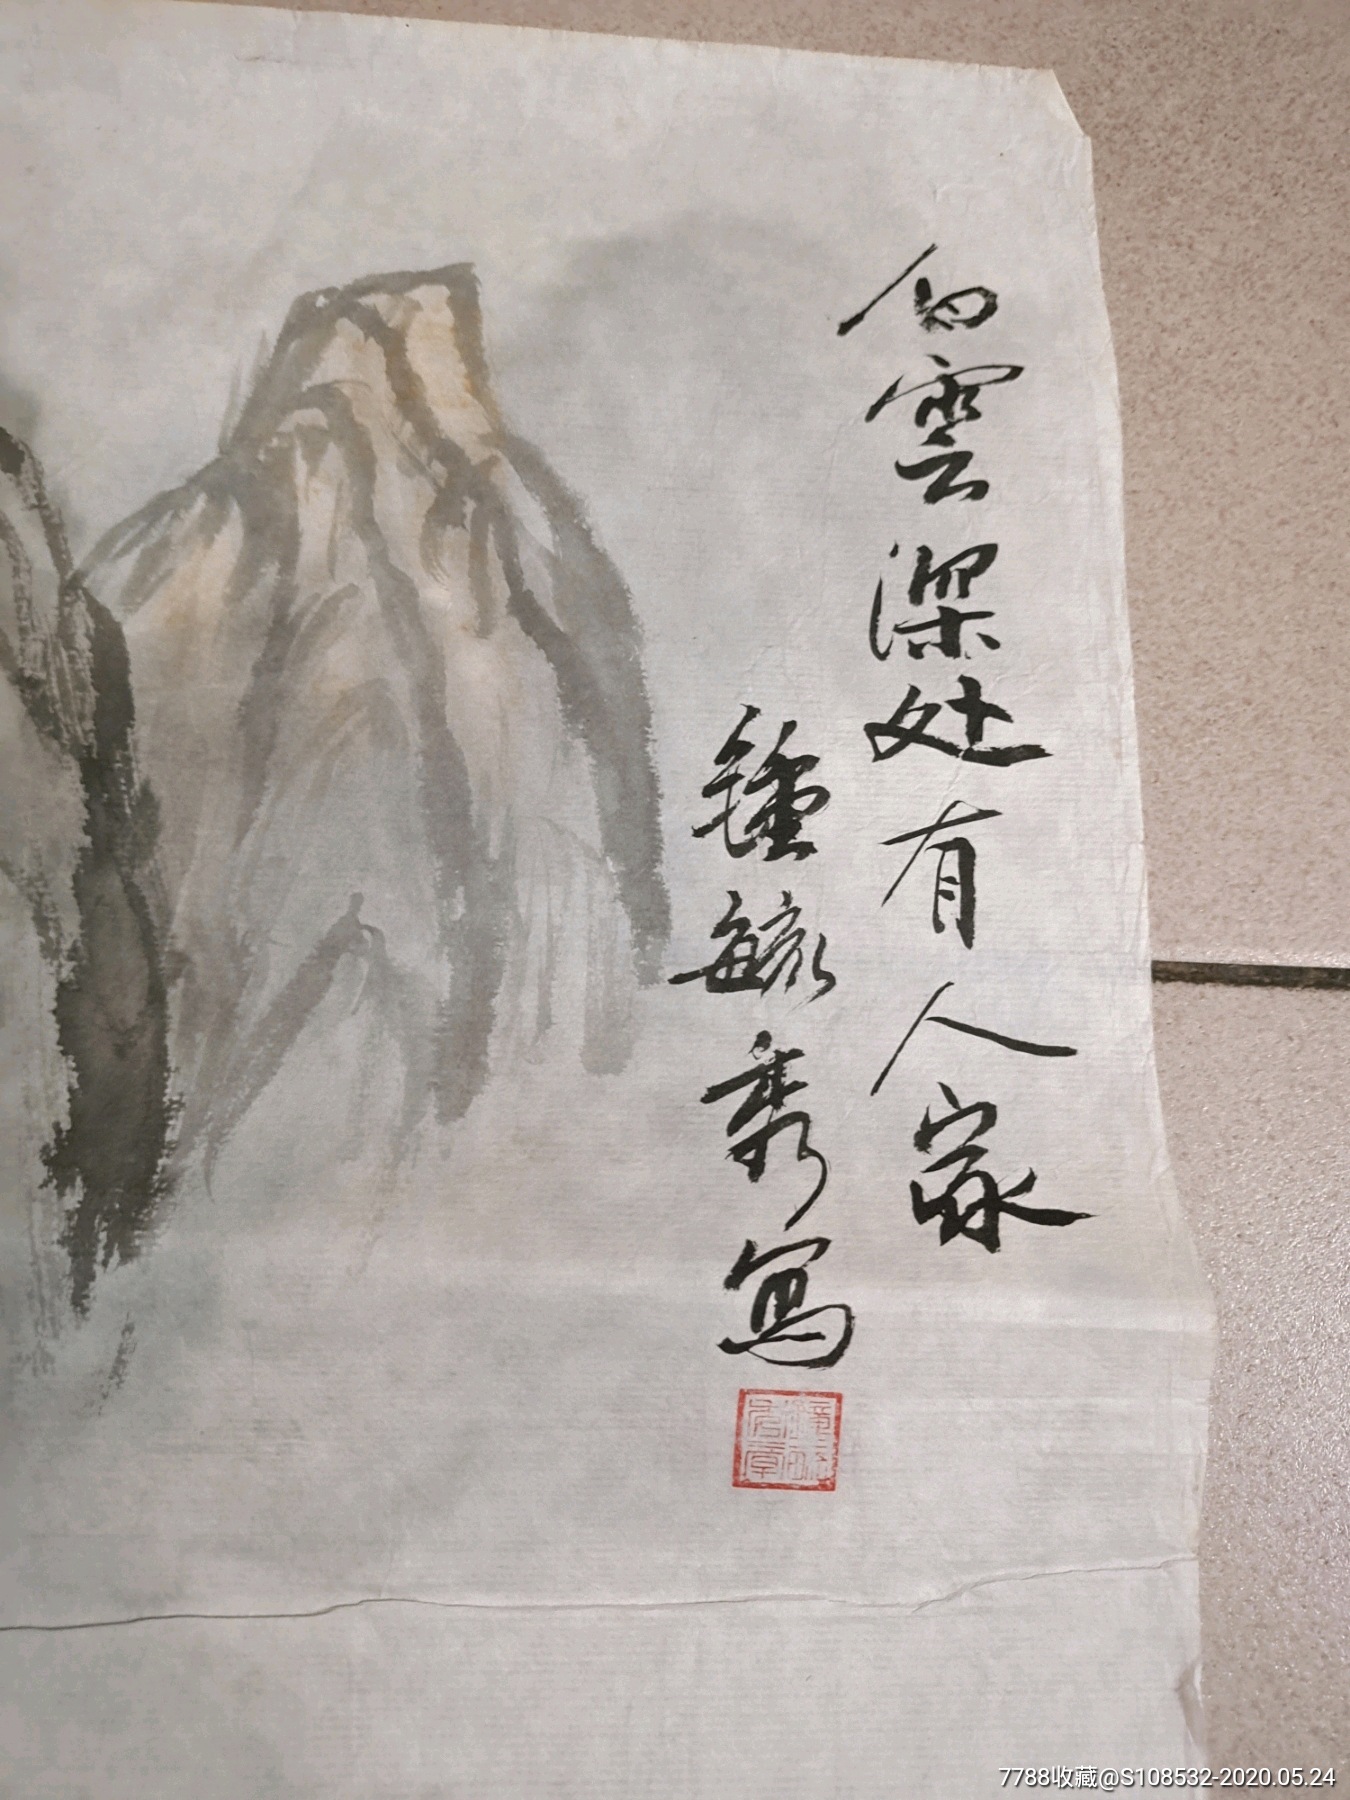 白雲深处有人家
鍾毓秀寫
7788收藏@S108532-2020.05.24